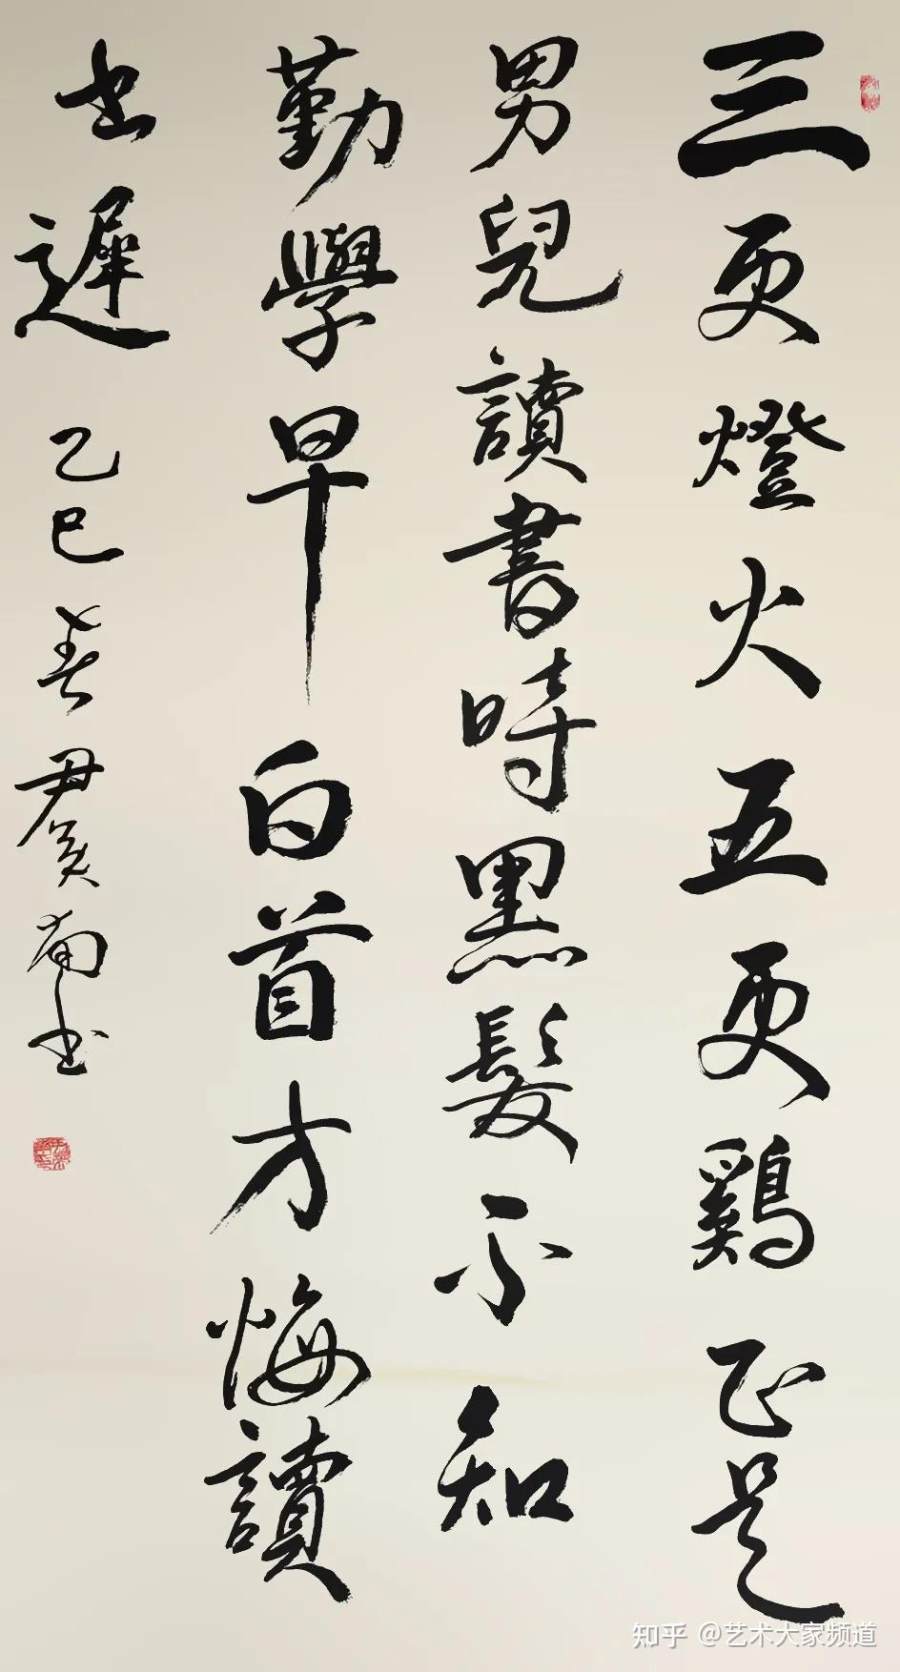 三更燈火五更鷄正是
男兒讀書時黑髮不知
勤學早白首方悔讀
书遲 乙巳春 尹癸南书
知乎 @艺术大家频道